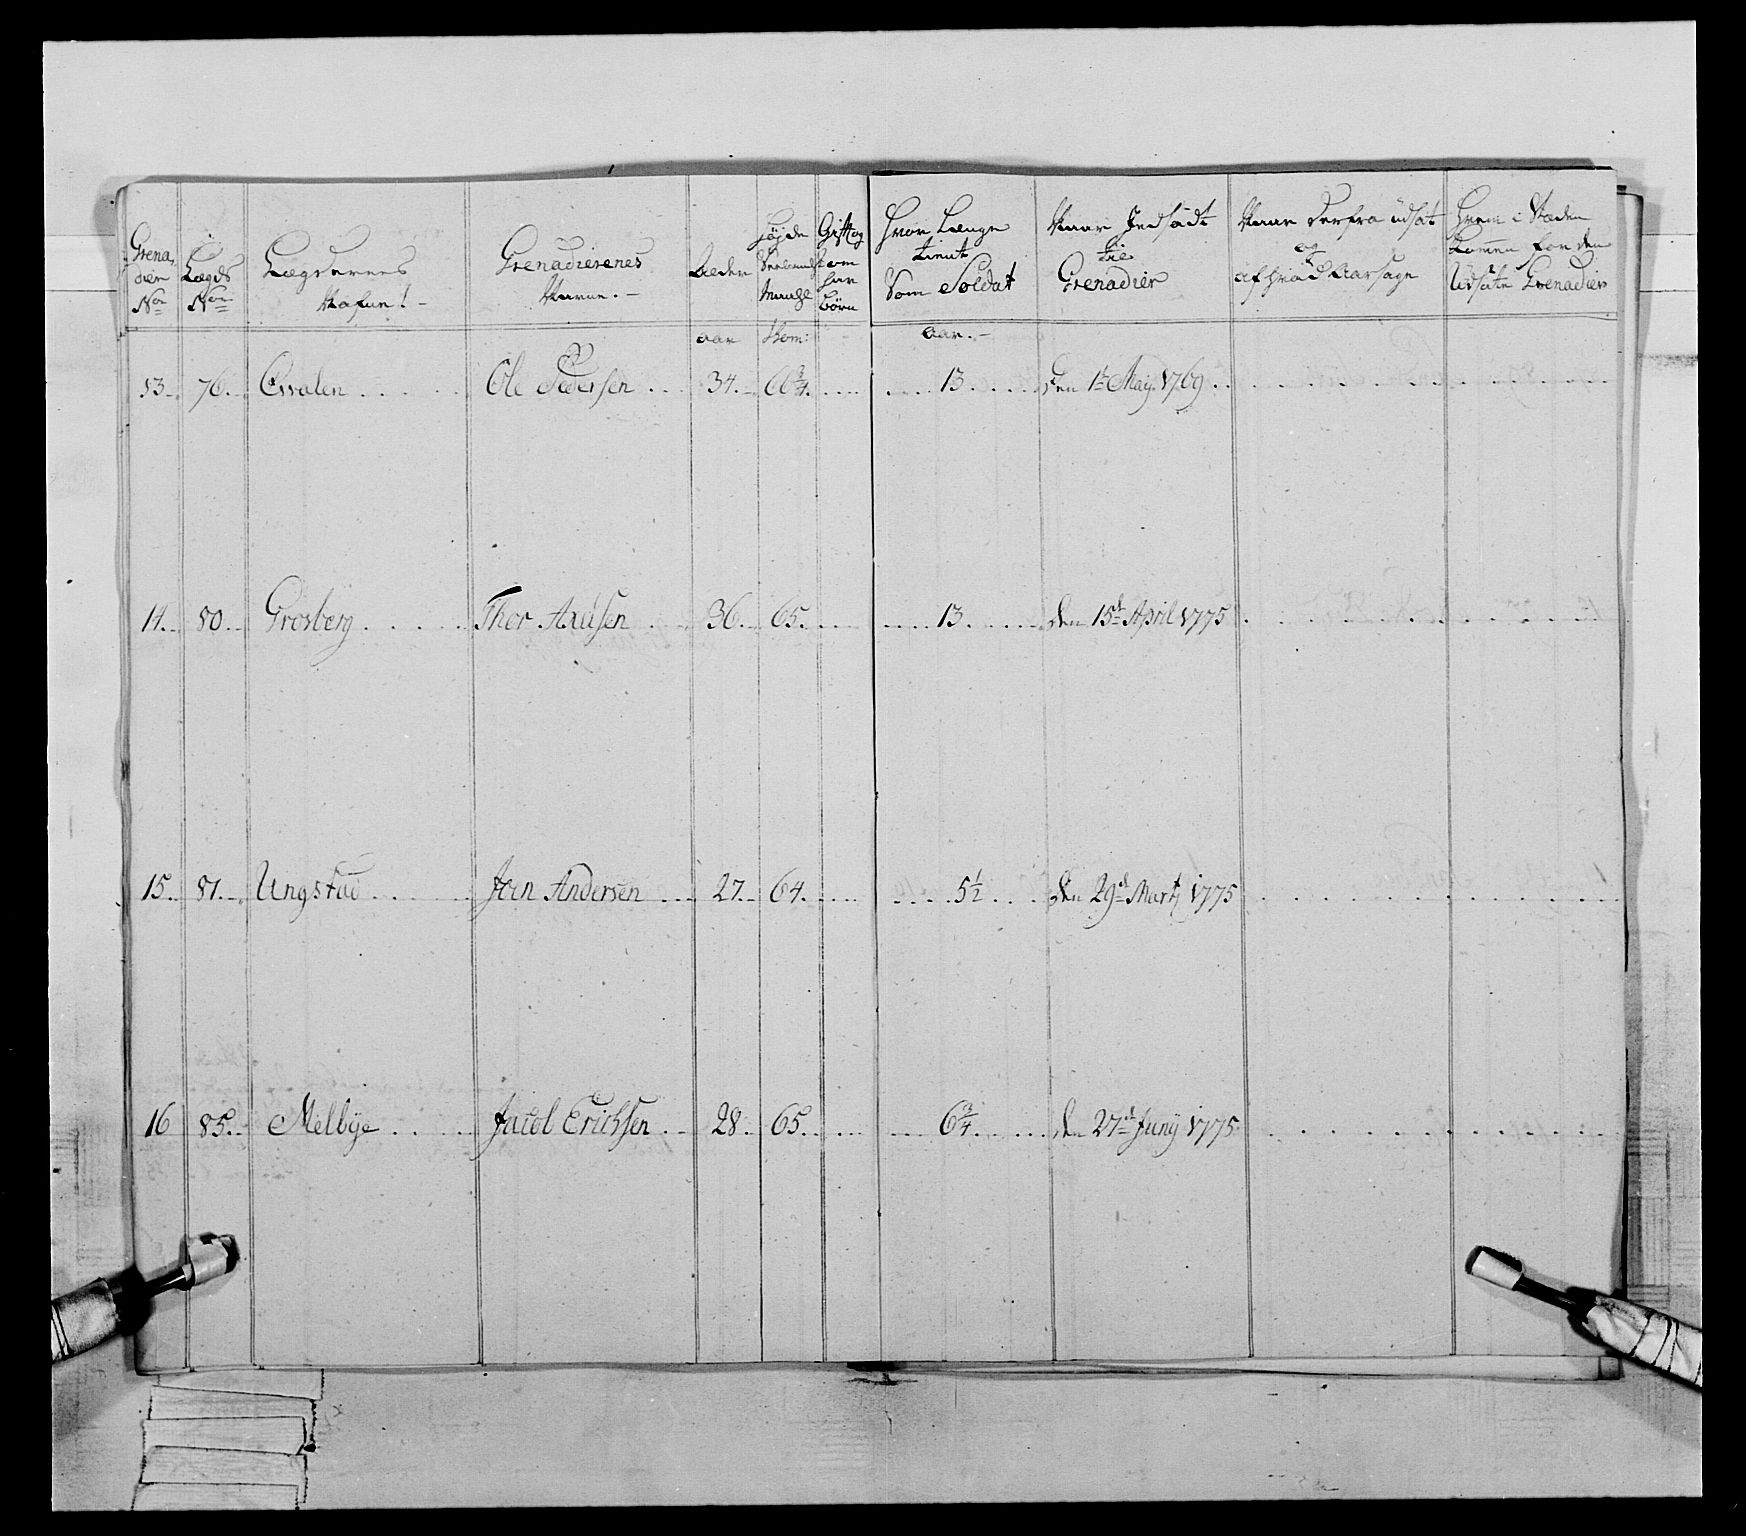 Grena-
dier
No
Lægds
No
Lægdernes
Nafne! -
Grenadierenes
Navne. -
Alder
Højde
Maale
Gift og
om
har
børn
Hvor Længe
tient
Som Soldat
Naar Indsadt
til
Grenadier
Naar derfra udsat
og
af hvad Aarsage
Hvem i Stæden
kommen for den
Udsatte Grenadier
aar
Tom:
aar. -
13. 76. Ole Pedersen 34. 66 3/4. 13. den 1te May 1769
14. 80. Grosberg Thor Axelsen 36. 65. 13. den 15de April 1775
15. 81. Ungstad Jon Andersen 27. 64. 5 1/2 den 29de Martj 1775
16 85. Melbye Jacob Erichsen 28. 65. 6 3/4. den 27de Junij 1775